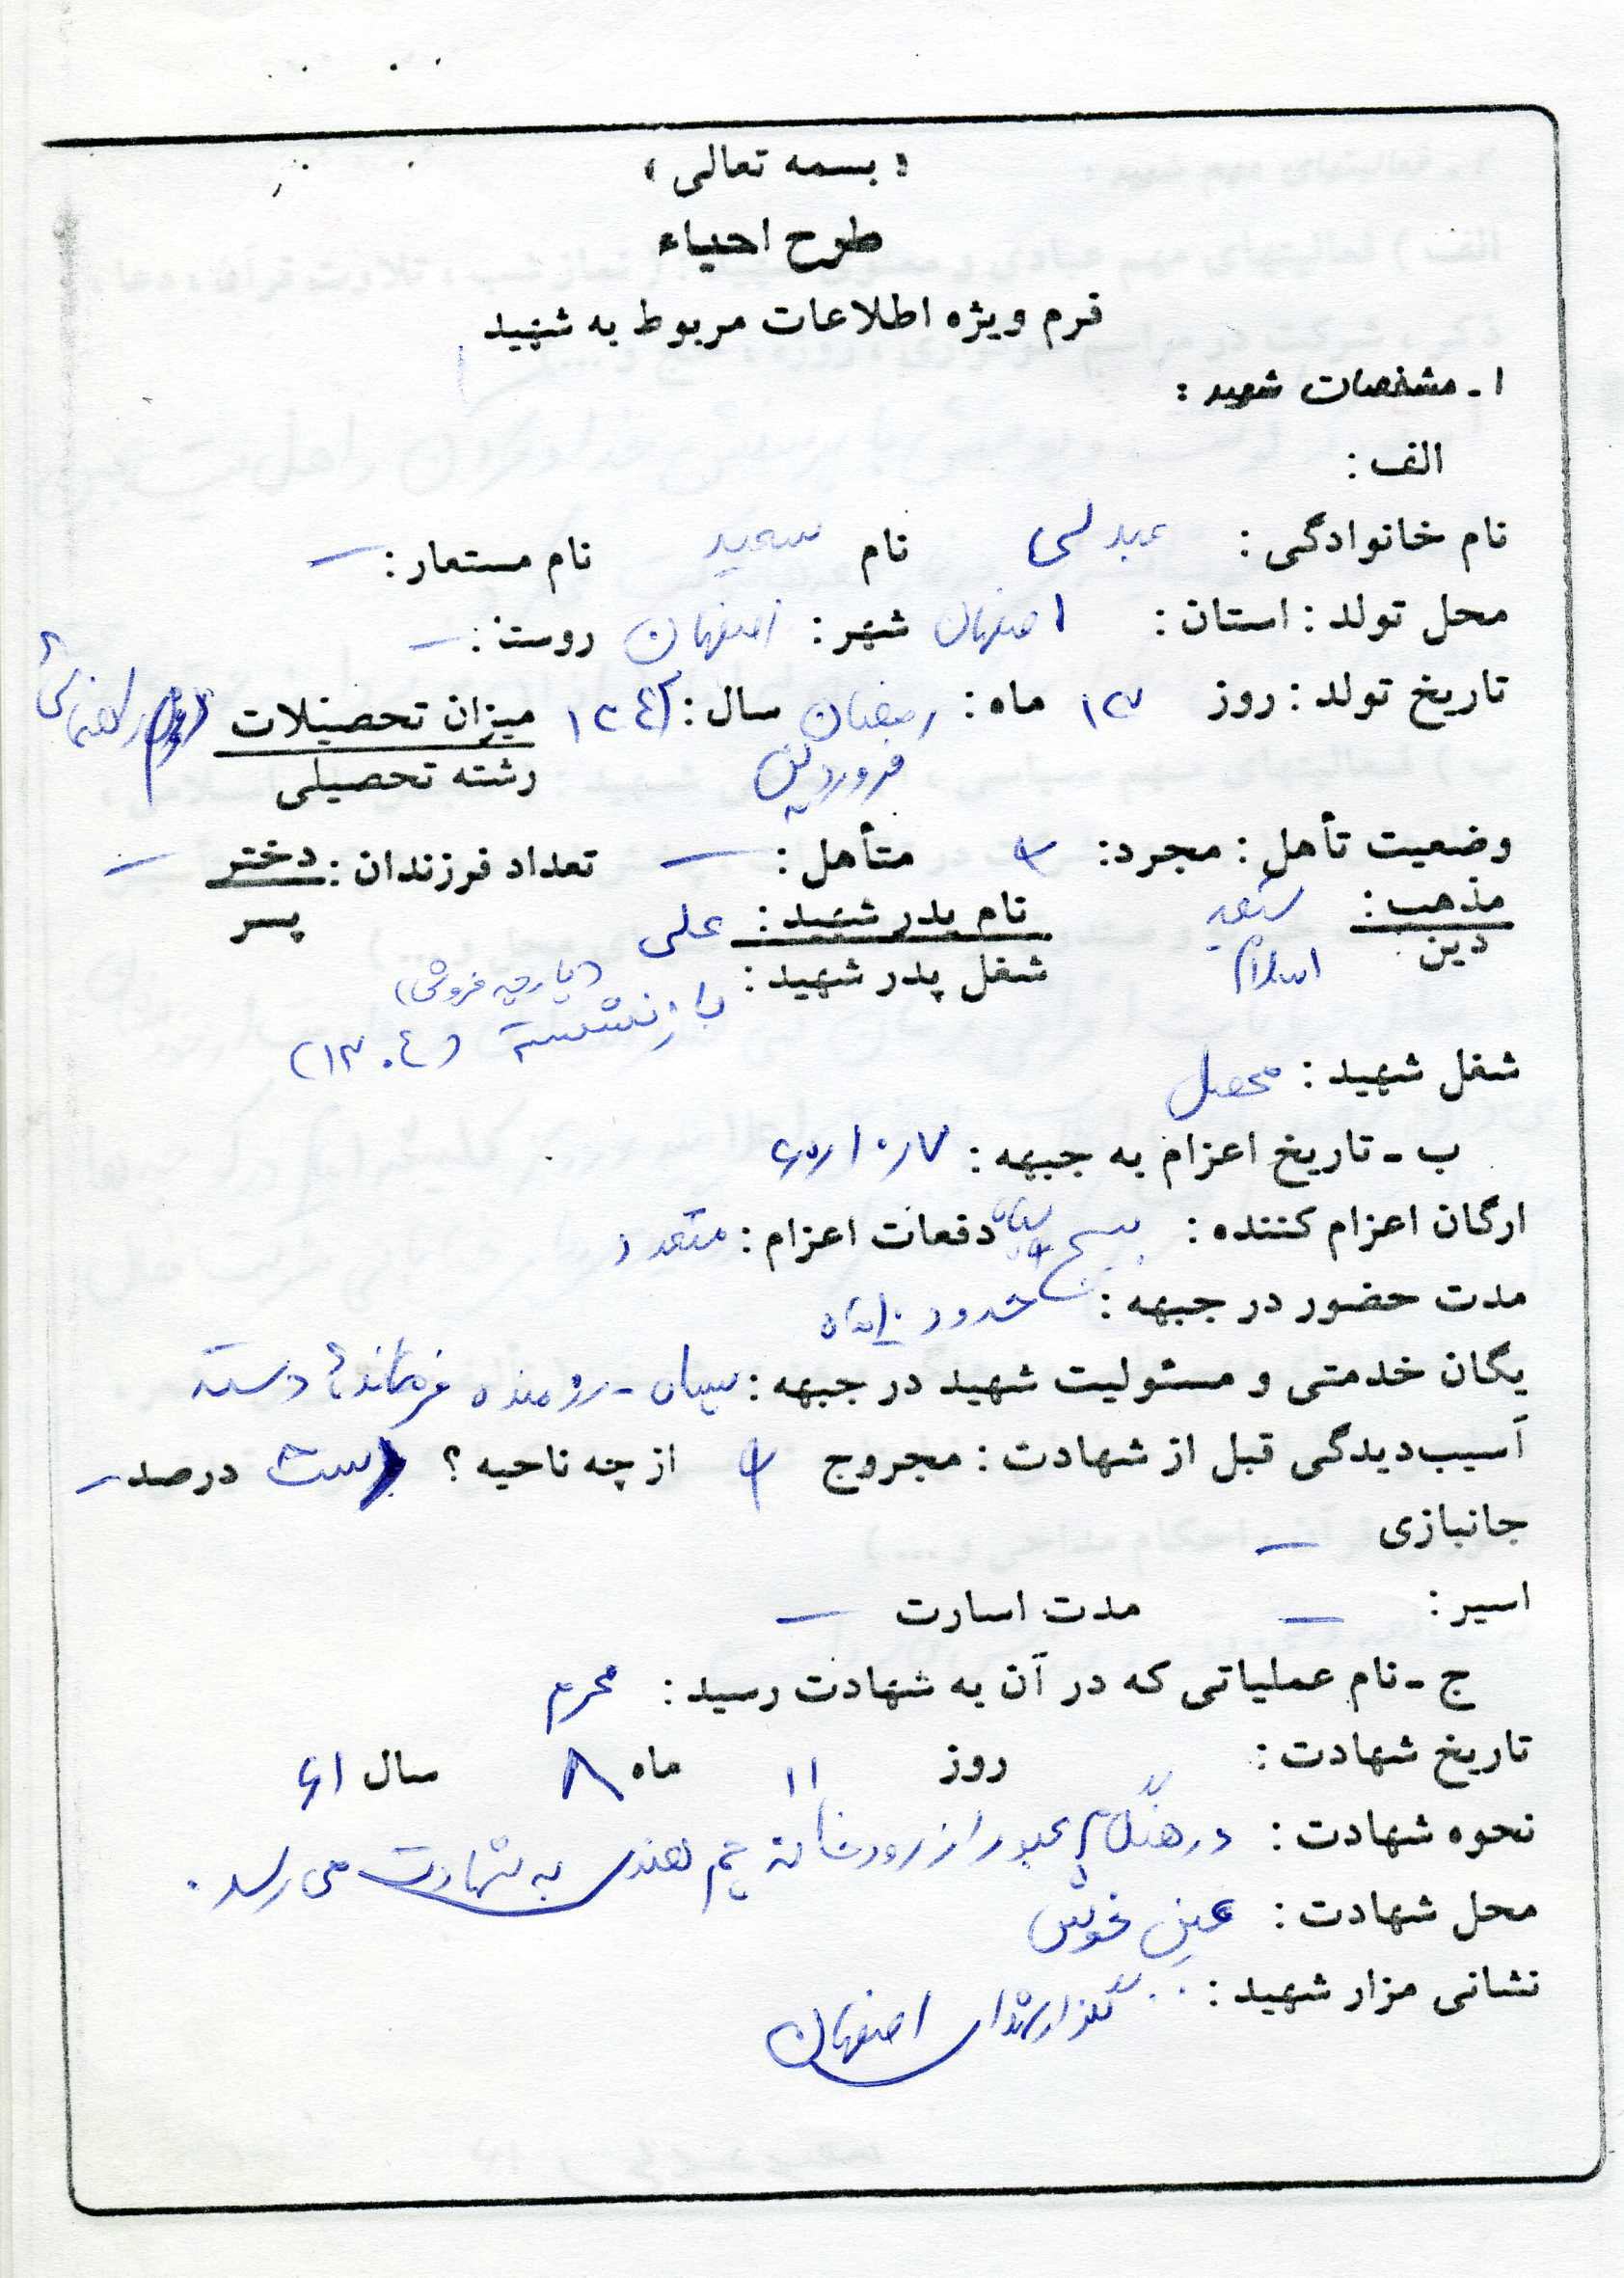 « بسمه تعالی »
طرح احیاء
فرم ویژه اطلاعات مربوط به شهید
۱ ـ مشخصات شهید :
الف :
نام خانوادگی : عبدلی نام سعید نام مستعار : —
محل تولد : استان : اصفهان شهر : اصفهان روستا : —
تاریخ تولد : روز ۱۳ ماه : رمضان سال : میزان تحصیلات راهنمائی
فروردین رشته تحصیلی
وضعیت تأهل : مجرد : متأهل : — تعداد فرزندان : دختر —
پسر
مذهب : شیعه نام پدر شهید : علی
دین اسلام شغل پدر شهید : بازنشسته (پارچه فروشی)
(۱۳۰۴)
شغل شهید : محصل
ب ـ تاریخ اعزام به جبهه :
ارگان اعزام کننده : بسیج سپاه دفعات اعزام : متعدد
مدت حضور در جبهه : حدود ۱۰ ماه
یگان خدمتی و مسئولیت شهید در جبهه : سپاه - رزمنده فرمانده دسته
آسیب‌دیدگی قبل از شهادت : مجروح از چه ناحیه ؟ دست درصد —
جانبازی —
اسیر : — مدت اسارت —
ج ـ نام عملیاتی که در آن به شهادت رسید : محرم
تاریخ شهادت : روز ۱۱ ماه ۸ سال ۶۱
نحوه شهادت : در هنگام عبور از رودخانه چم هندی به شهادت می رسد .
محل شهادت : عین خوش
نشانی مزار شهید : گلزار شهدای اصفهان